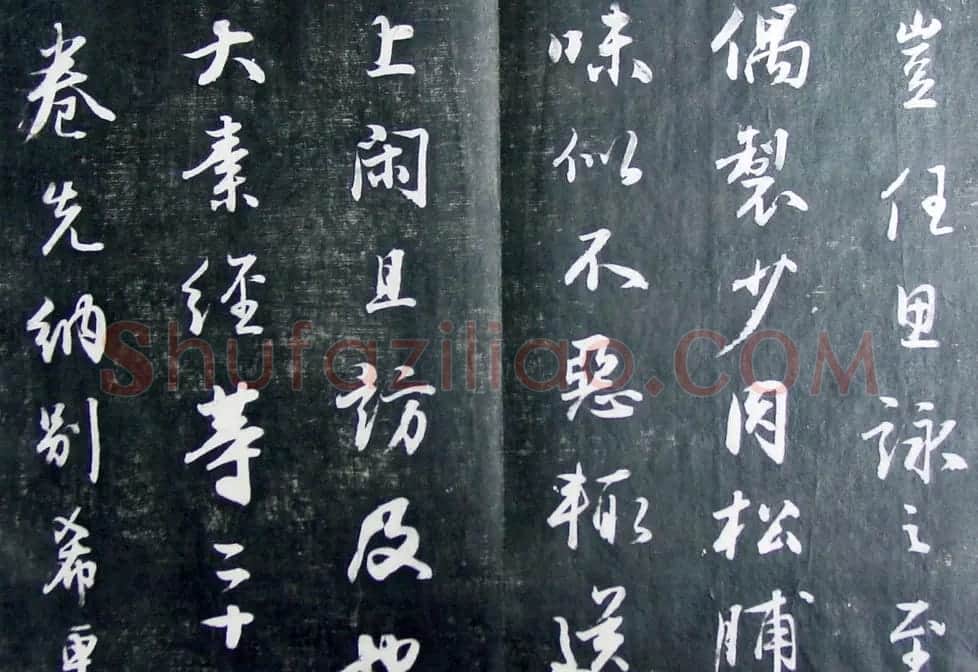 豈任思詠之至
偶製少肉松脯
味似不惡輙送
上閑且訪及
大素經等二十
卷先納別希
Shufaziliao.COM